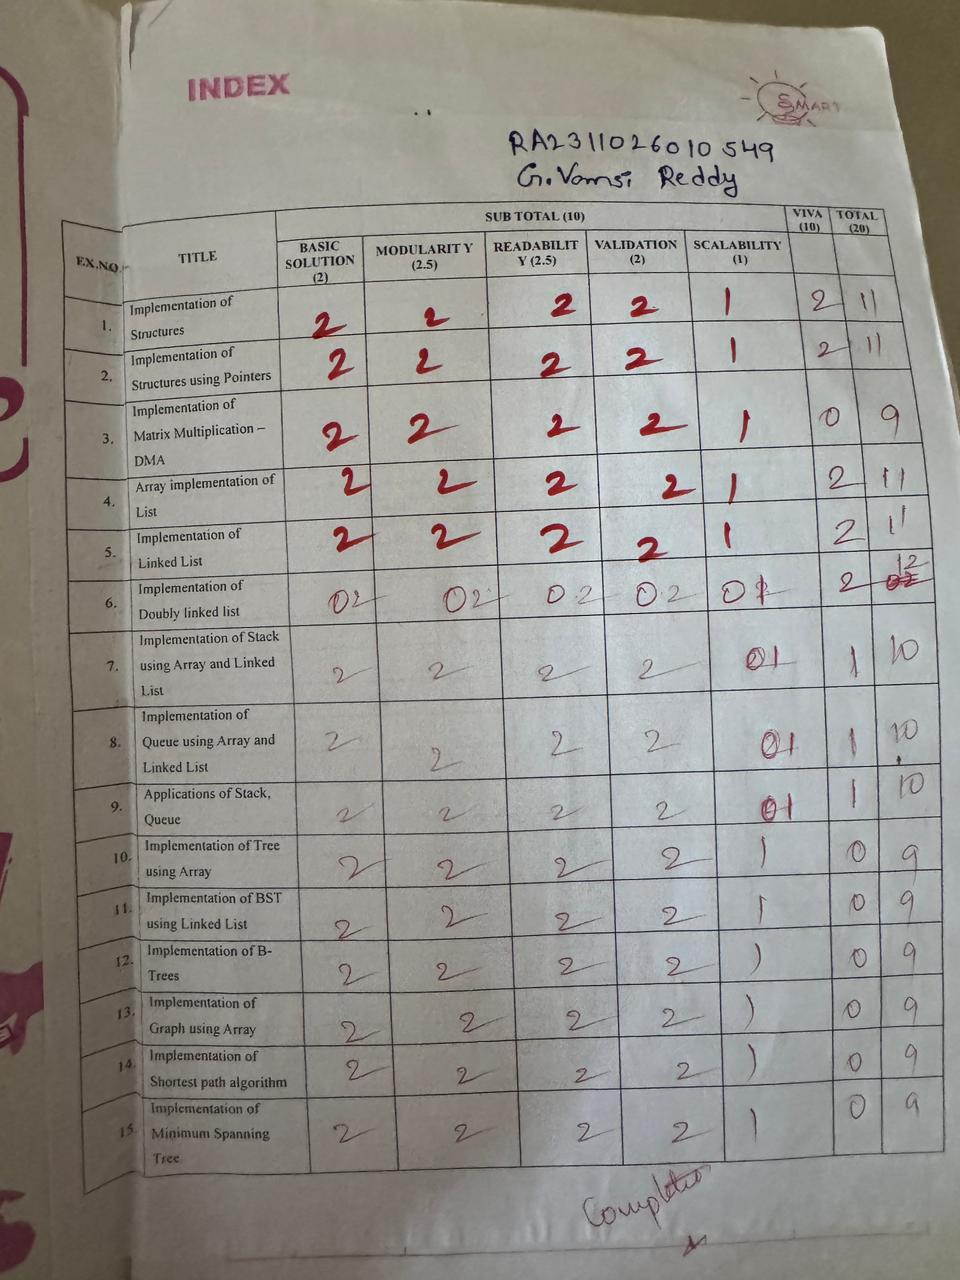 INDEX
SMART
RA2311026010549
G.Vamsi Reddy
EX.NO. TITLE SUB TOTAL (10) VIVA (10) TOTAL (20)
BASIC SOLUTION (2) MODULARITY (2.5) READABILITY (2.5) VALIDATION (2) SCALABILITY (1)
1. Implementation of Structures 2 2 2 2 1 2 11
2. Implementation of Structures using Pointers 2 2 2 2 1 2 11
3. Implementation of Matrix Multiplication – DMA 2 2 2 2 1 0 9
4. Array implementation of List 2 2 2 2 1 2 11
5. Implementation of Linked List 2 2 2 2 1 2 11
6. Implementation of Doubly linked list 02 02 02 02 01 2 12
7. Implementation of Stack using Array and Linked List 2 2 2 2 01 1 10
8. Implementation of Queue using Array and Linked List 2 2 2 2 01 1 10
9. Applications of Stack, Queue 2 2 2 2 01 1 10
10. Implementation of Tree using Array 2 2 2 2 1 0 9
11. Implementation of BST using Linked List 2 2 2 2 1 0 9
12. Implementation of B-Trees 2 2 2 2 1 0 9
13. Implementation of Graph using Array 2 2 2 2 1 0 9
14. Implementation of Shortest path algorithm 2 2 2 2 1 0 9
15. Implementation of Minimum Spanning Tree 2 2 2 2 1 0 9